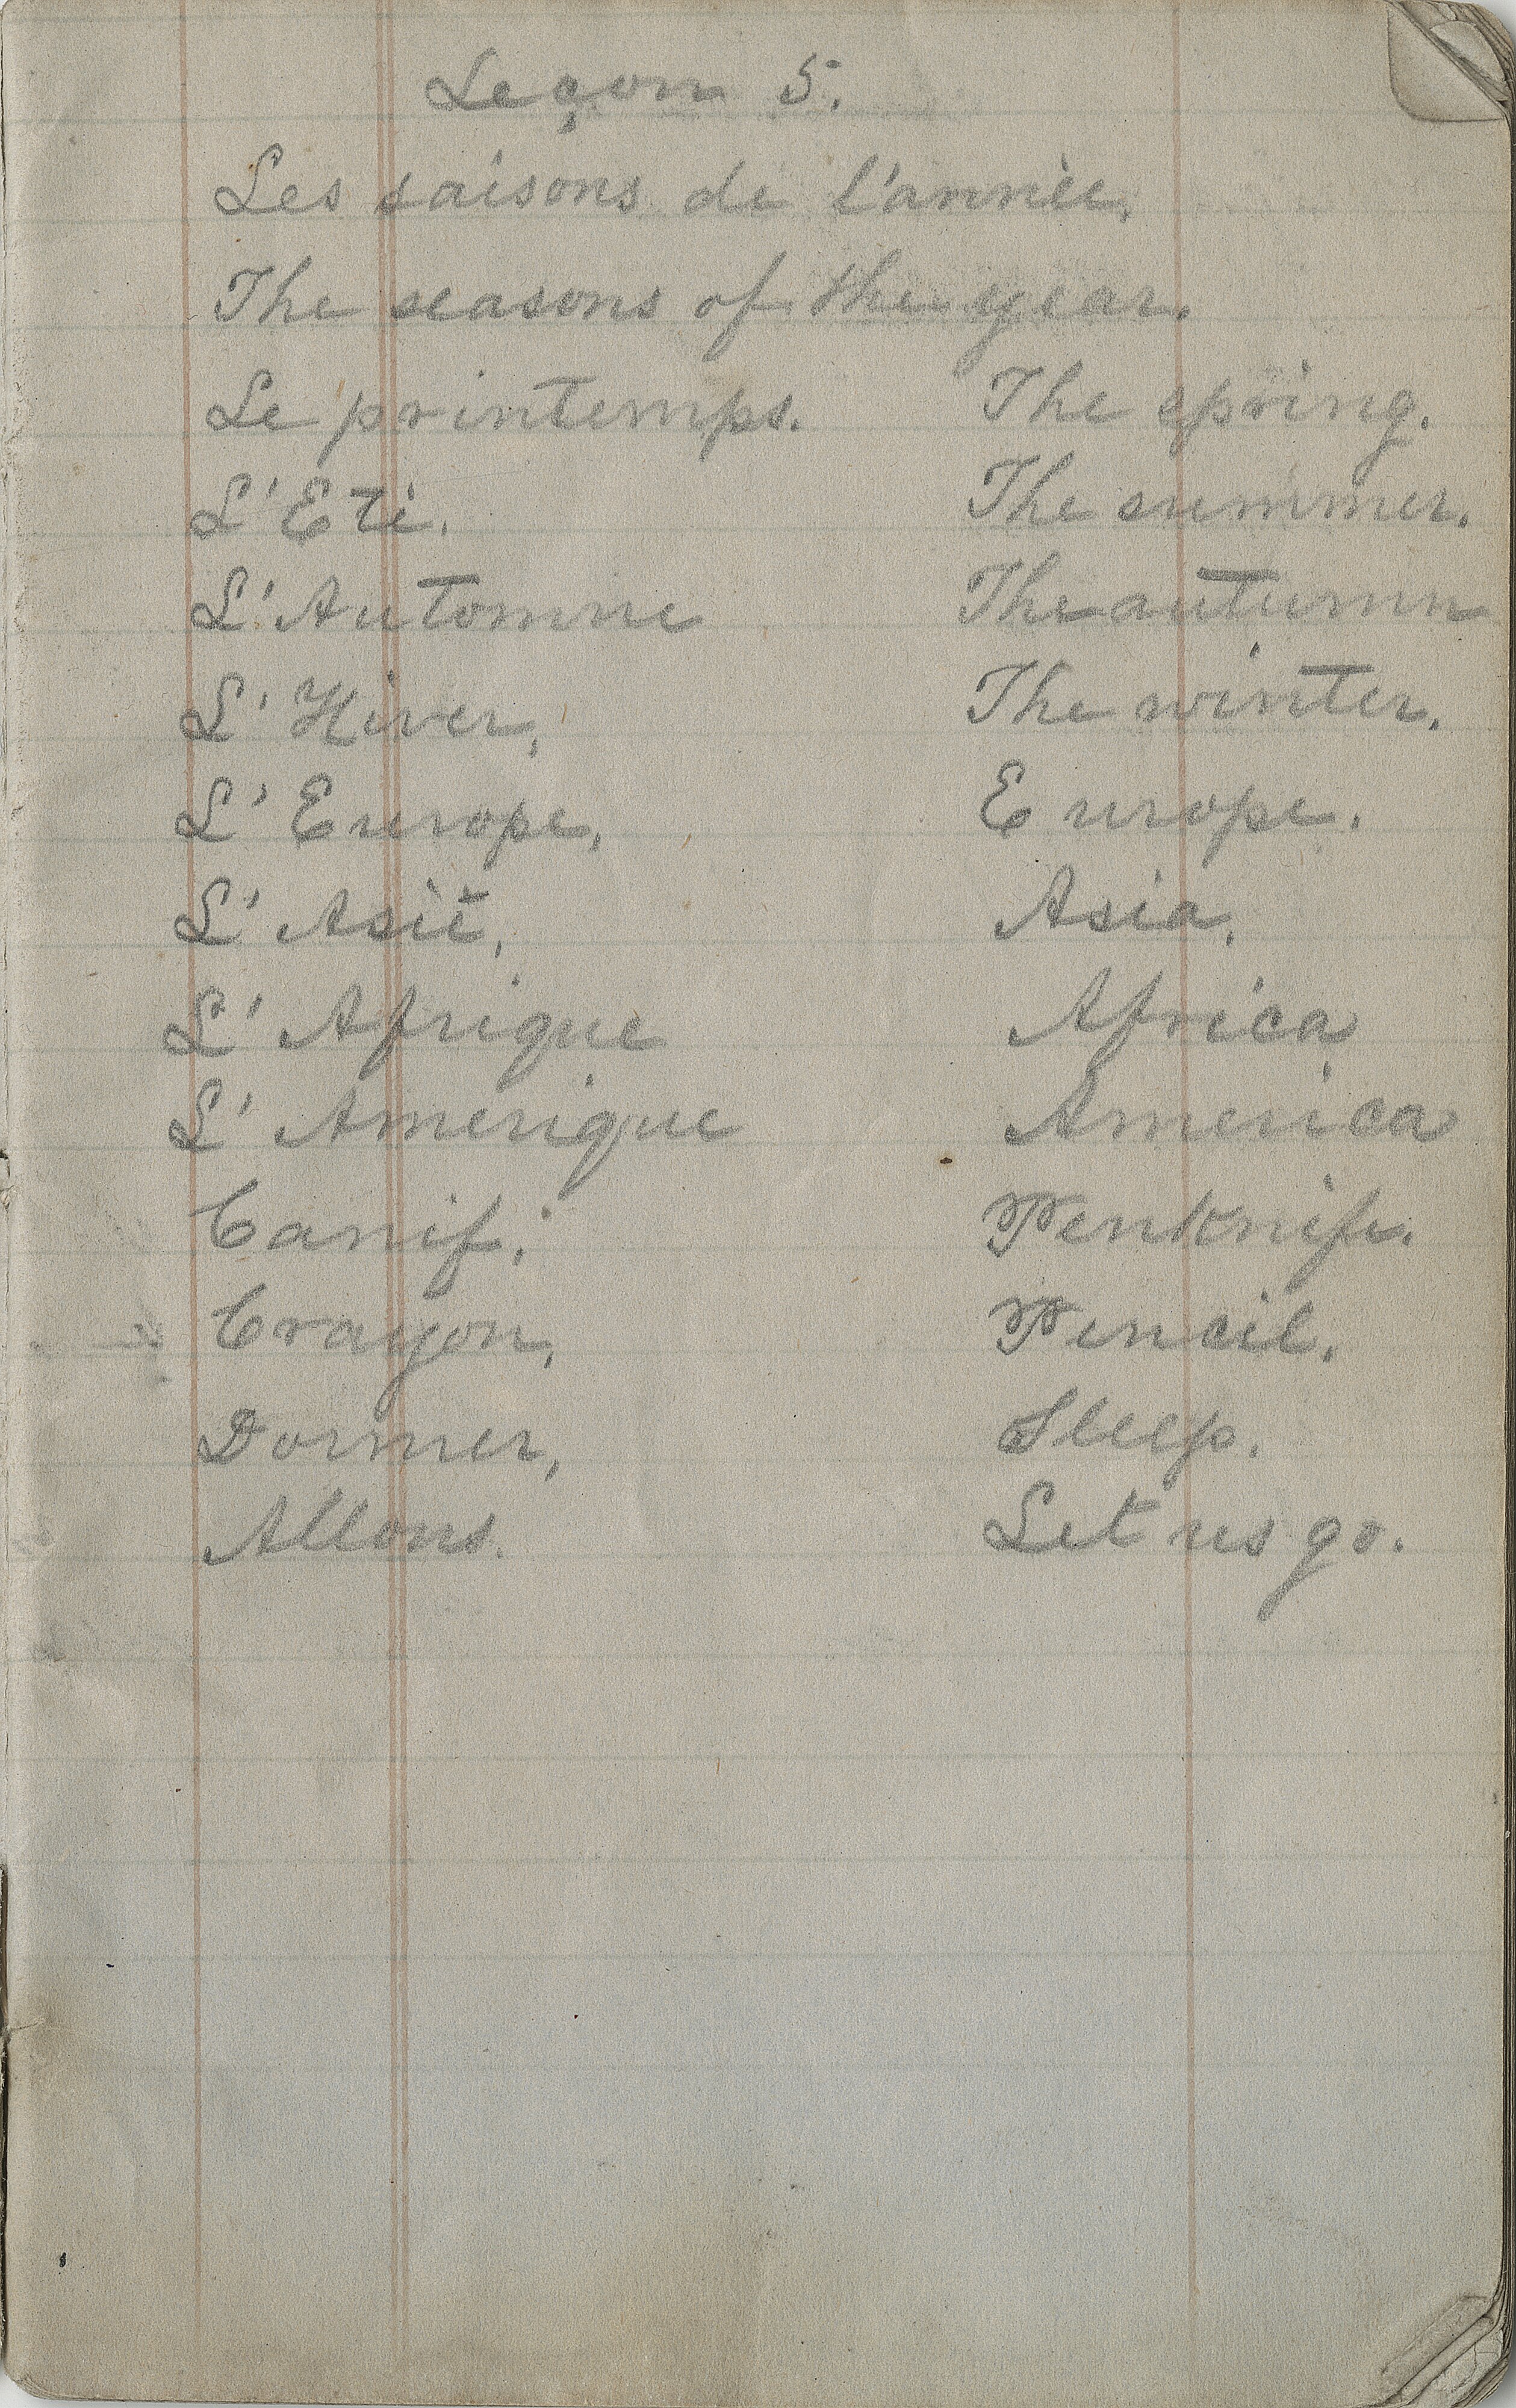 Leçon 5.
Les saisons de l'année.
The seasons of the year.
Le printemps. The spring.
L'Eté. The summer.
L'Automne The autumn
L'Hiver. The winter.
L'Europe. Europe.
L'Asiè. Asia.
L'Afrique Africa
L'Amerique America
Canif. Penknife.
Crayon. Pencil.
Dormer. Sleep.
Allons. Let us go.